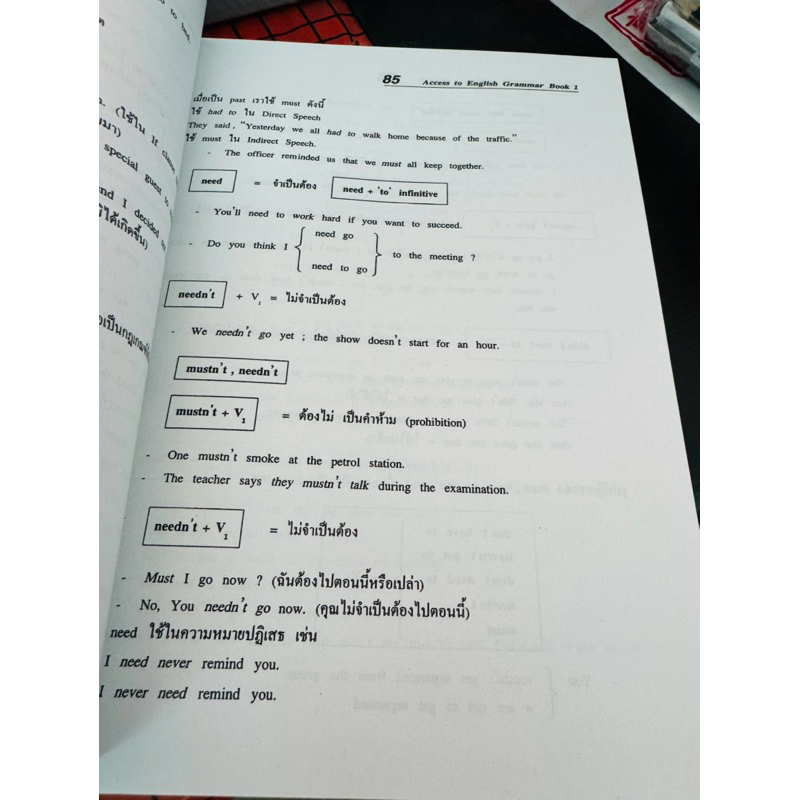 85 Access to English Grammar Book 1
เมื่อเป็น past เราใช้ must ดังนี้
ใช้ had to ใน Direct Speech
They said, "Yesterday we all had to walk home because of the traffic."
ใช้ must ใน Indirect Speech.
- The officer reminded us that we must all keep together.
need = จำเป็นต้อง need + 'to' infinitive
- You'll need to work hard if you want to succeed.
- Do you think I { need go / need to go } to the meeting ?
needn't + V1 = ไม่จำเป็นต้อง
- We needn't go yet ; the show doesn't start for an hour.
mustn't , needn't
mustn't + V1 = ต้องไม่ เป็นคำห้าม (prohibition)
- One mustn't smoke at the petrol station.
- The teacher says they mustn't talk during the examination.
needn't + V1 = ไม่จำเป็นต้อง
- Must I go now ? (ฉันต้องไปตอนนี้หรือเปล่า)
- No, You needn't go now. (คุณไม่จำเป็นต้องไปตอนนี้)
need ใช้ในความหมายปฏิเสธ เช่น
I need never remind you.
I never need remind you.
(ใช้ใน If clause
special guest to
and I decided